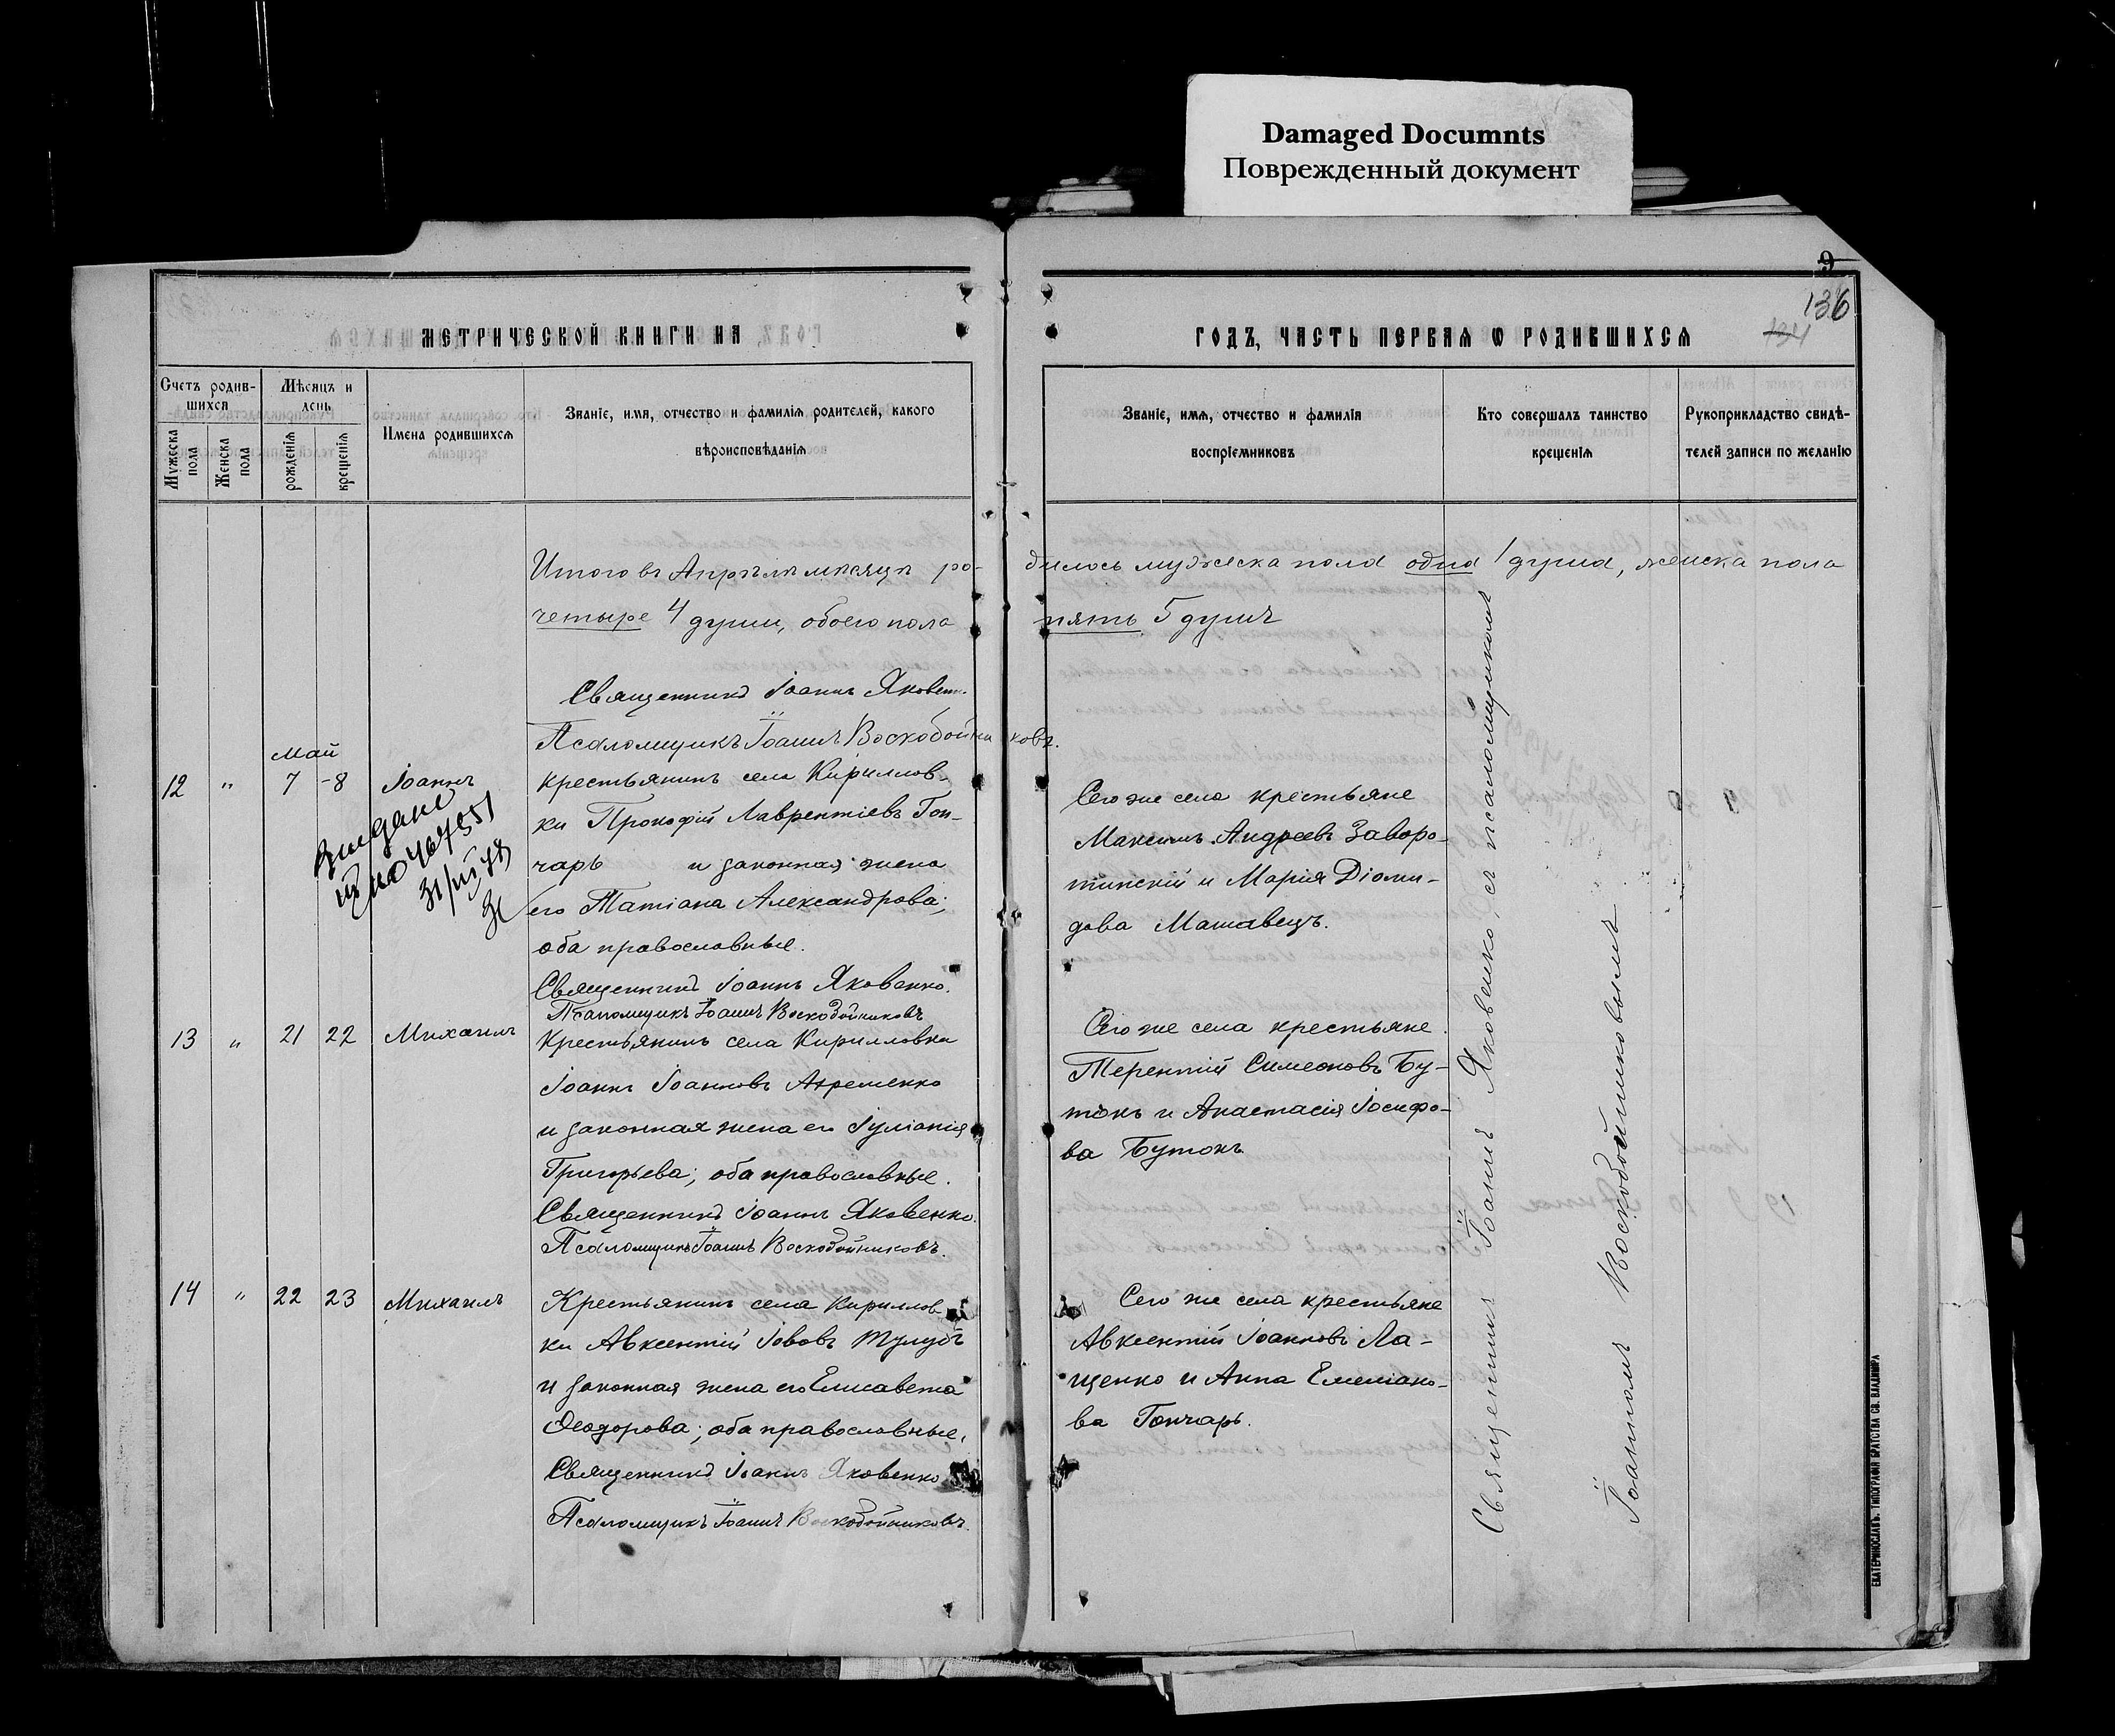 Damaged Documnts
Поврежденный документ
9
136
134
МЕТРИЧЕСКОЙ КНИГИ НА
ГОДЪ, ЧАСТЬ ПЕРВАЯ Ѡ РОДИВШИХСЯ
Счетъ родив-
шихся
Мужеска
пола
Женска
пола
Мѣсяцъ и
день
рожденія
крещенія
Имена родившихся
Званіе, имя, отчество и фамилія родителей, какого
вѣроисповѣданія
Званіе, имя, отчество и фамилія
воспріемниковъ
Кто совершалъ таинство
крещенія
Рукоприкладство свидѣ-
телей записи по желанію
Итого въ Апрѣлѣ мѣсяцѣ ро- дилось мужеска пола одна 1 душа, женска пола
четыре 4 души, обоего пола пять 5 душъ
Священникъ Іоаннъ Яковен.
Псаломщикъ Іоаннъ Воскобойниковъ.
Май
12 " 7 -8 Іоаннъ
крестьянинъ села Кириллов-
ки Прокофій Лаврентіевъ Гон-
чарь и законная жена
его Татіана Александрова;
оба православные.
Священникъ Іоаннъ Яковенко.
Псаломщикъ Іоаннъ Воскобойниковъ
Сего же села крестьяне
Максимъ Андреевъ Заворо-
тинскій и Марія Діоми-
дова Маташвецъ.
13 " 21 22 Михаилъ
Крестьянинъ села Кирилловки
Іоаннъ Іоанновъ Ахременко
и законная жена его Іуліанія
Григорьева; оба православные.
Священникъ Іоаннъ Яковенко.
Псаломщикъ Іоаннъ Воскобойниковъ.
Сего же села крестьяне
Терентій Симеоновъ Бу-
токъ и Анастасія Іосифо-
ва Бутокъ
14 " 22 23 Михаилъ
Крестьянинъ села Кириллов
ки Авксентій Іововъ Тулубъ
и законная жена его Елисавета
Ѳеодорова; оба православные.
Священникъ Іоаннъ Яковенко
Псаломщикъ Іоаннъ Воскобойниковъ.
Сего же села крестьяне
Авксентій Іоанновъ Ла-
щенко и Анна Емеліано-
ва Гончарь.
Священникъ Іоаннъ Яковенко, съ псаломщикомъ
Іоанномъ Воскобойниковымъ
ЕКАТЕРИНОСЛАВЪ. ТИПОГРАФІЯ БРАТСТВА СВ. ВЛАДИМІРА